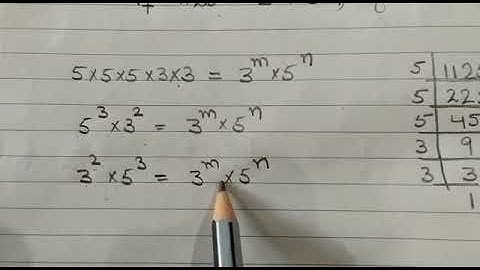 5×5×5×3×3 = 3^m×5^n
5^3×3^2 = 3^m×5^n
3^2×5^3 = 3^m×5^n
5 | 1125
5 | 225
5 | 45
3 | 9
3 | 3
1